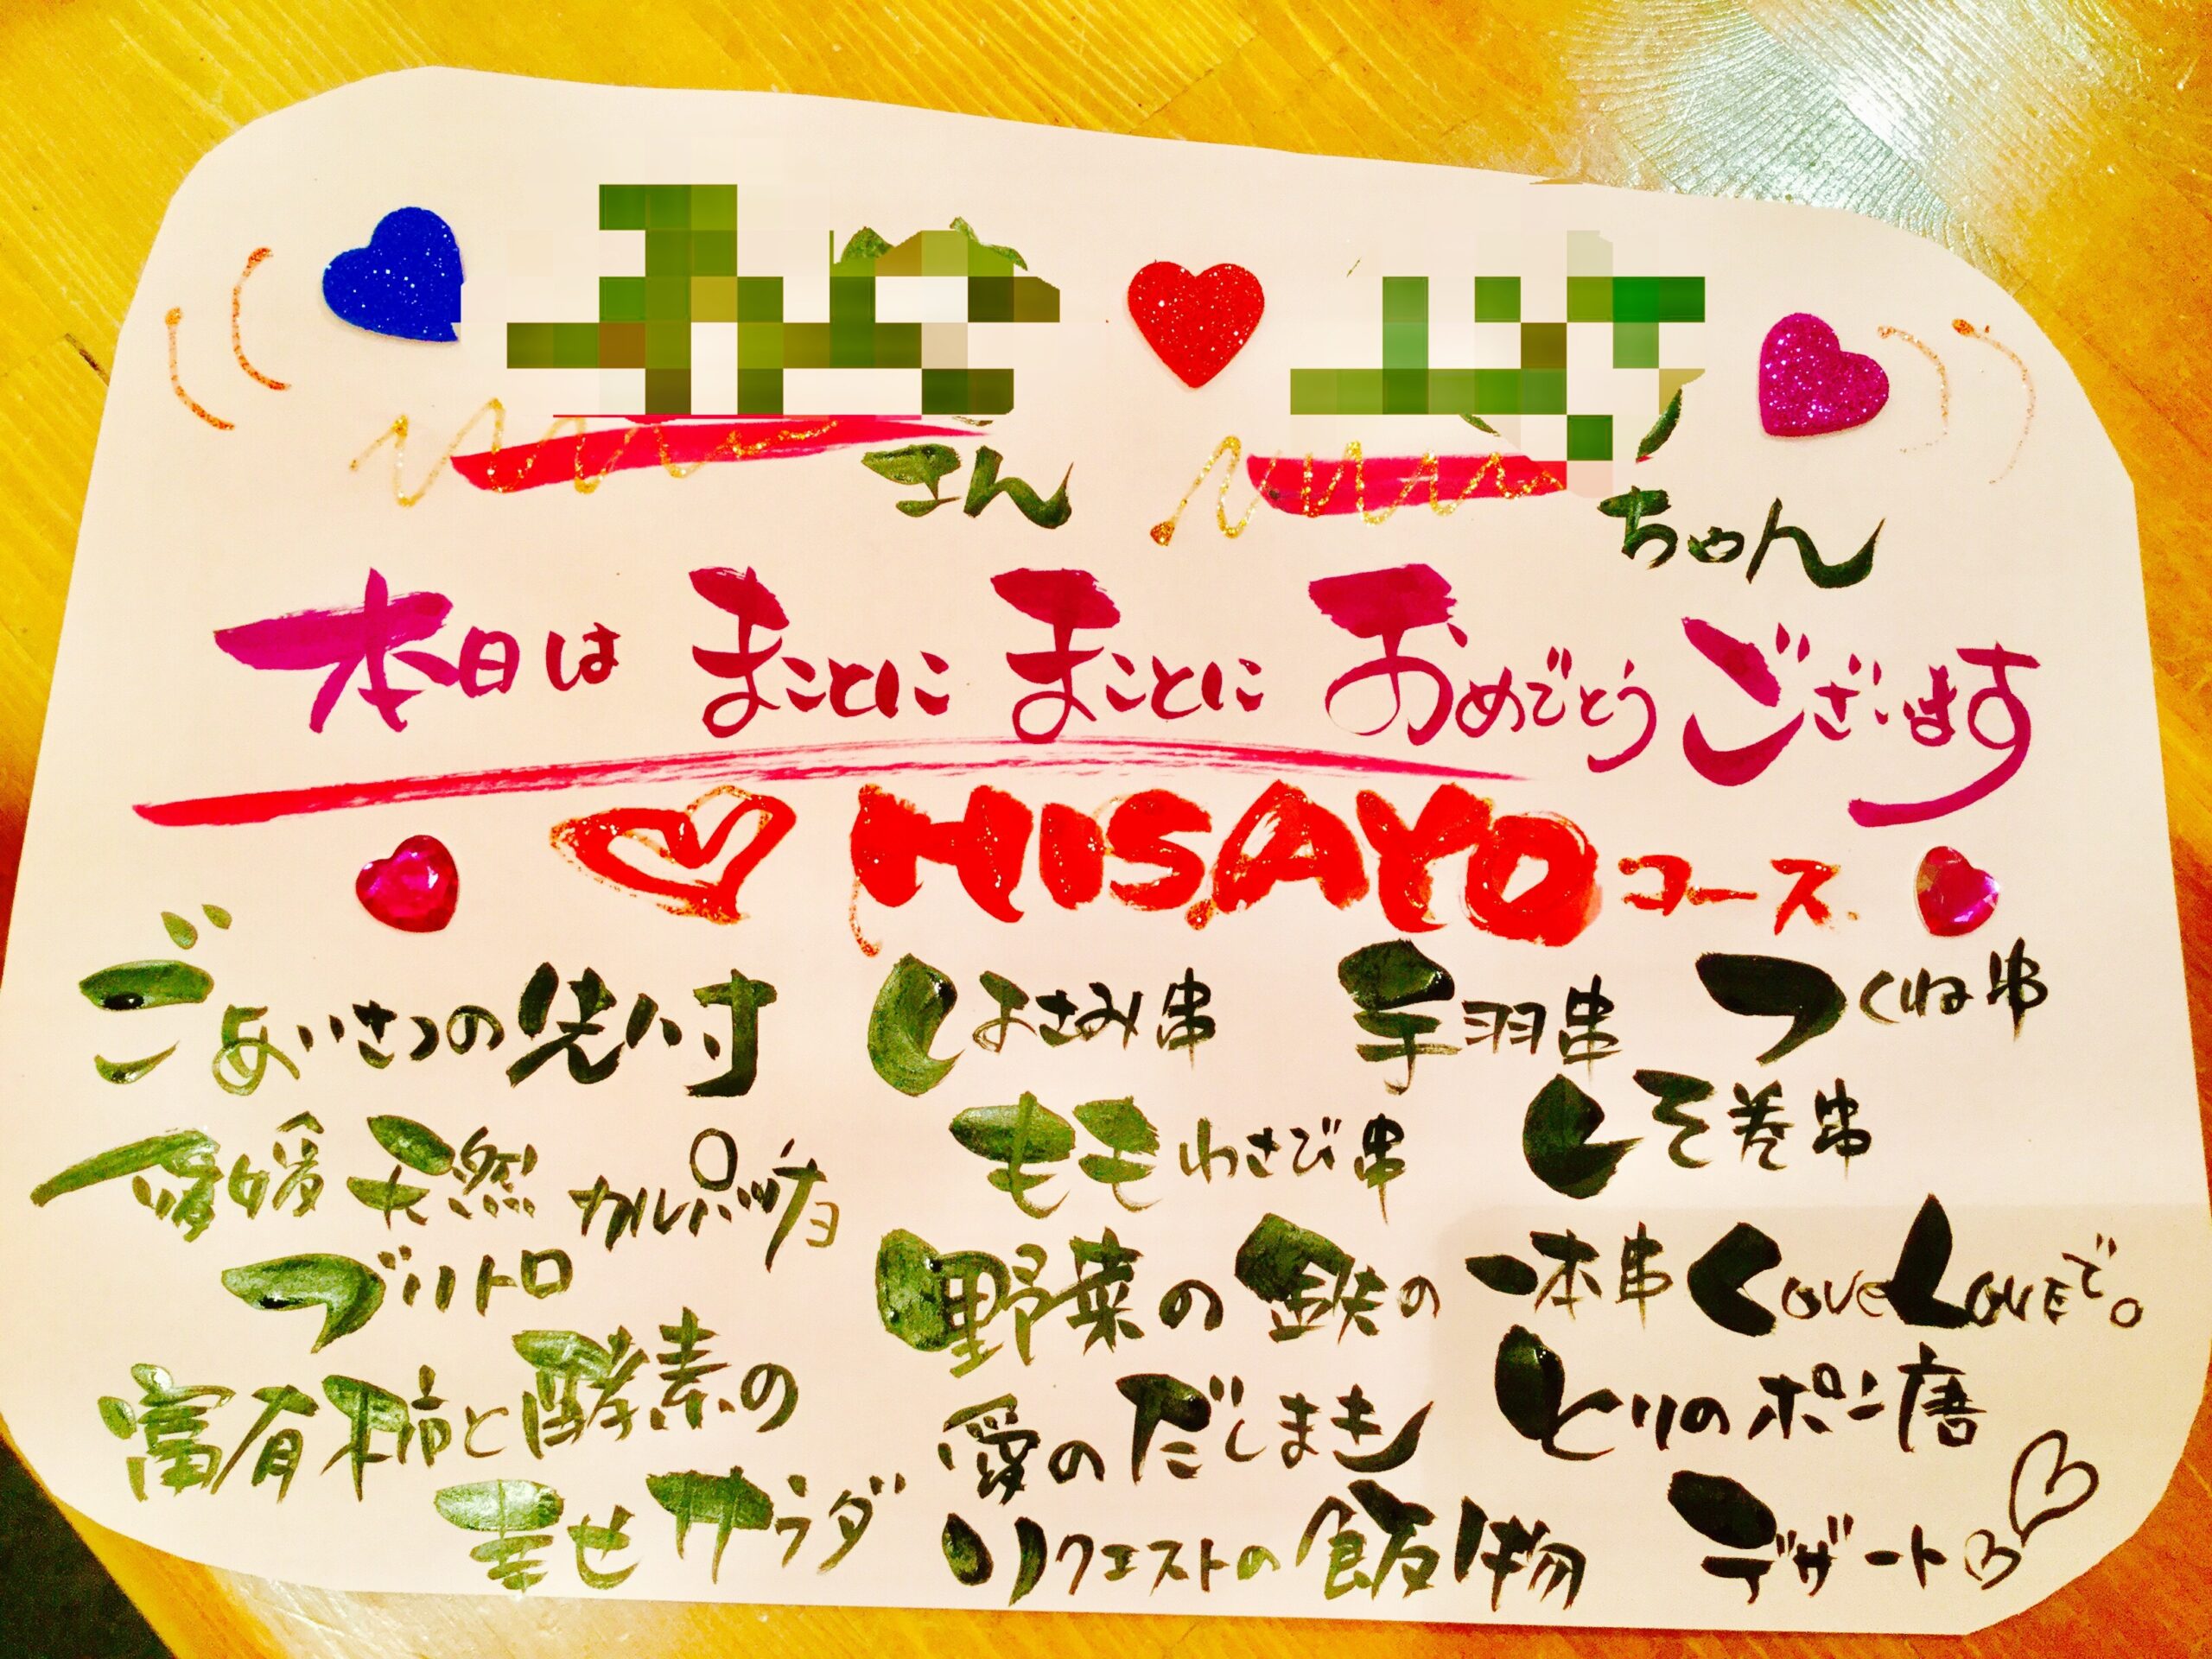 さん ちゃん
本日は まことに まことに おめでとう ございます
HISAYO コース.
ごあいさつの先付
愛媛 天然 カルパッチョ
ブリトロ
富有柿と酵素の
幸せサラダ
はさみ串 手羽串 つくね串
ももわさび串 しそ巻串
野菜の鉄の 一本串 LoveLOVEで。
愛のだしまき とりのポン唐
リクエストの飯物 デザート